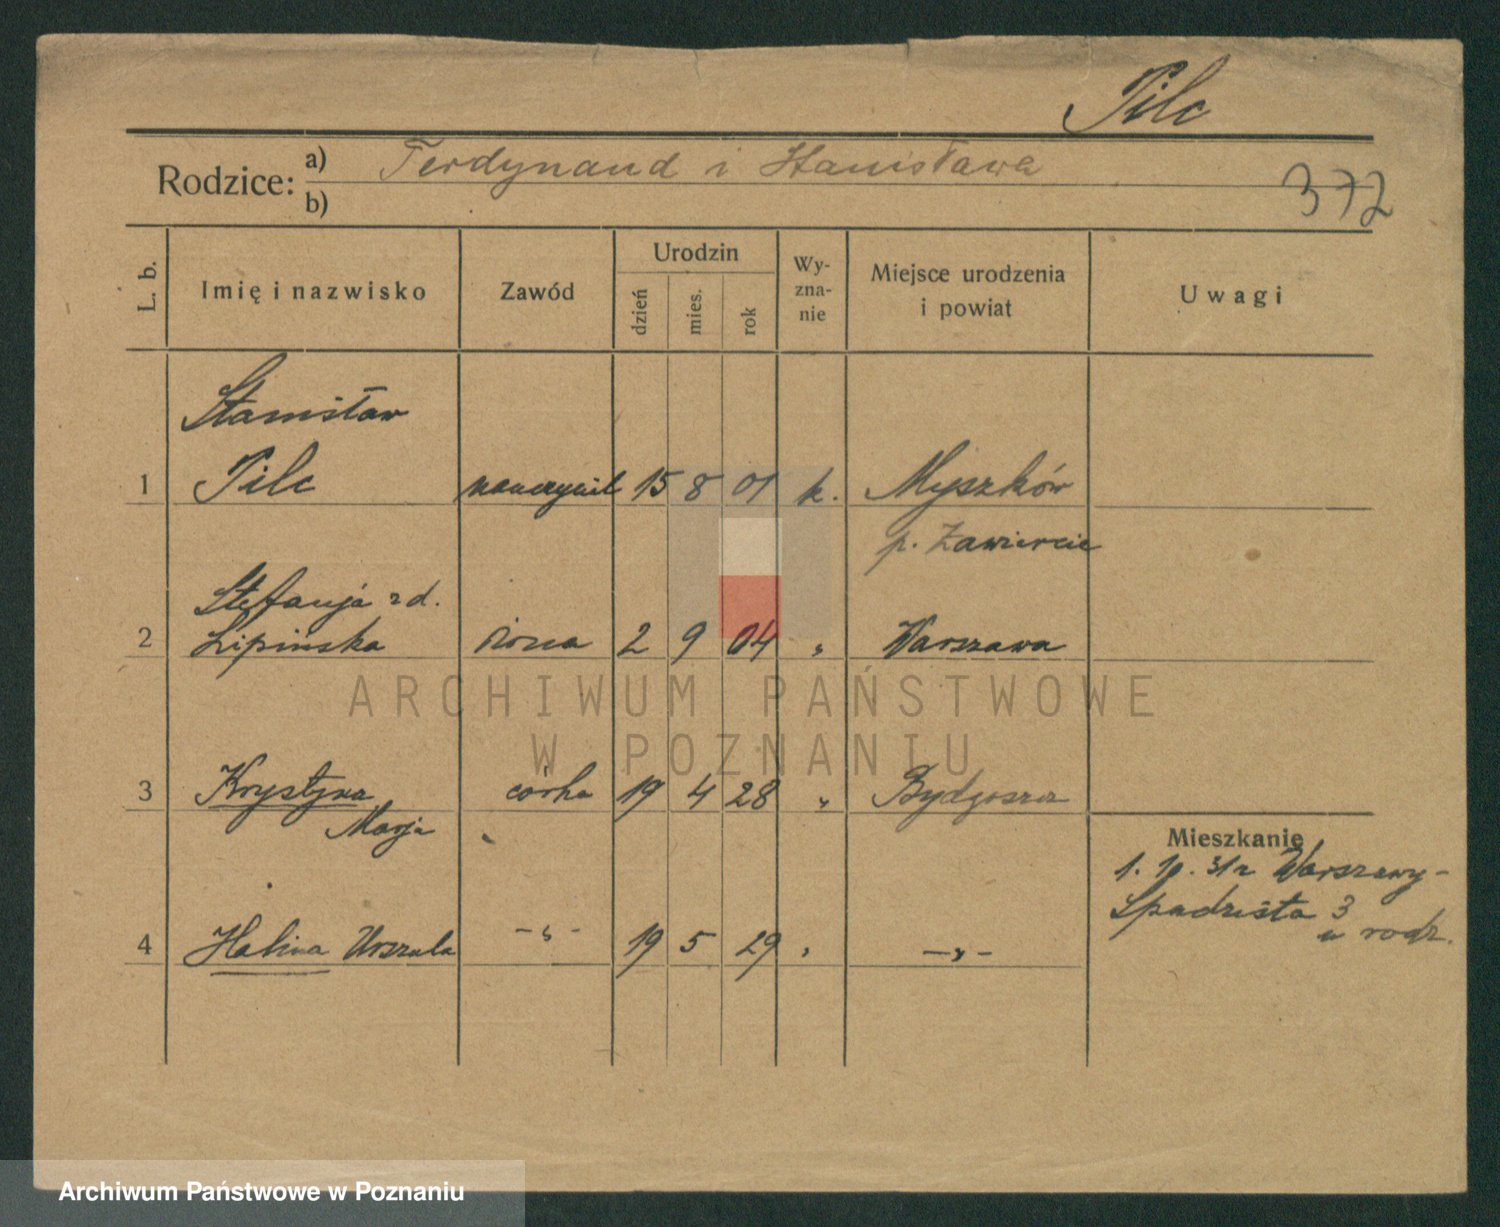 Pilc
Rodzice: a) Ferdynand i Stanisława
b)
372
L. b.
Imię i nazwisko
Zawód
Urodzin
dzień
mies.
rok
Wy-
zna-
nie
Miejsce urodzenia
i powiat
Uwagi
Stanisław
1 Pilc nauczyciel 15 8 01 k. Myszków
p. Zawiercie
Stefanja z d.
2 Lipińska żona 2 9 04 " Warszawa
3 Krystyna córka 19 4 28 " Bydgoszcz
Marja
4 Halina Urszula -"- 19 5 29 " -"-
Mieszkanie
1. 10. 31 z Warszawy-
Spadzista 3
u rodz.
ARCHIWUM PAŃSTWOWE
W POZNANIU
Archiwum Państwowe w Poznaniu